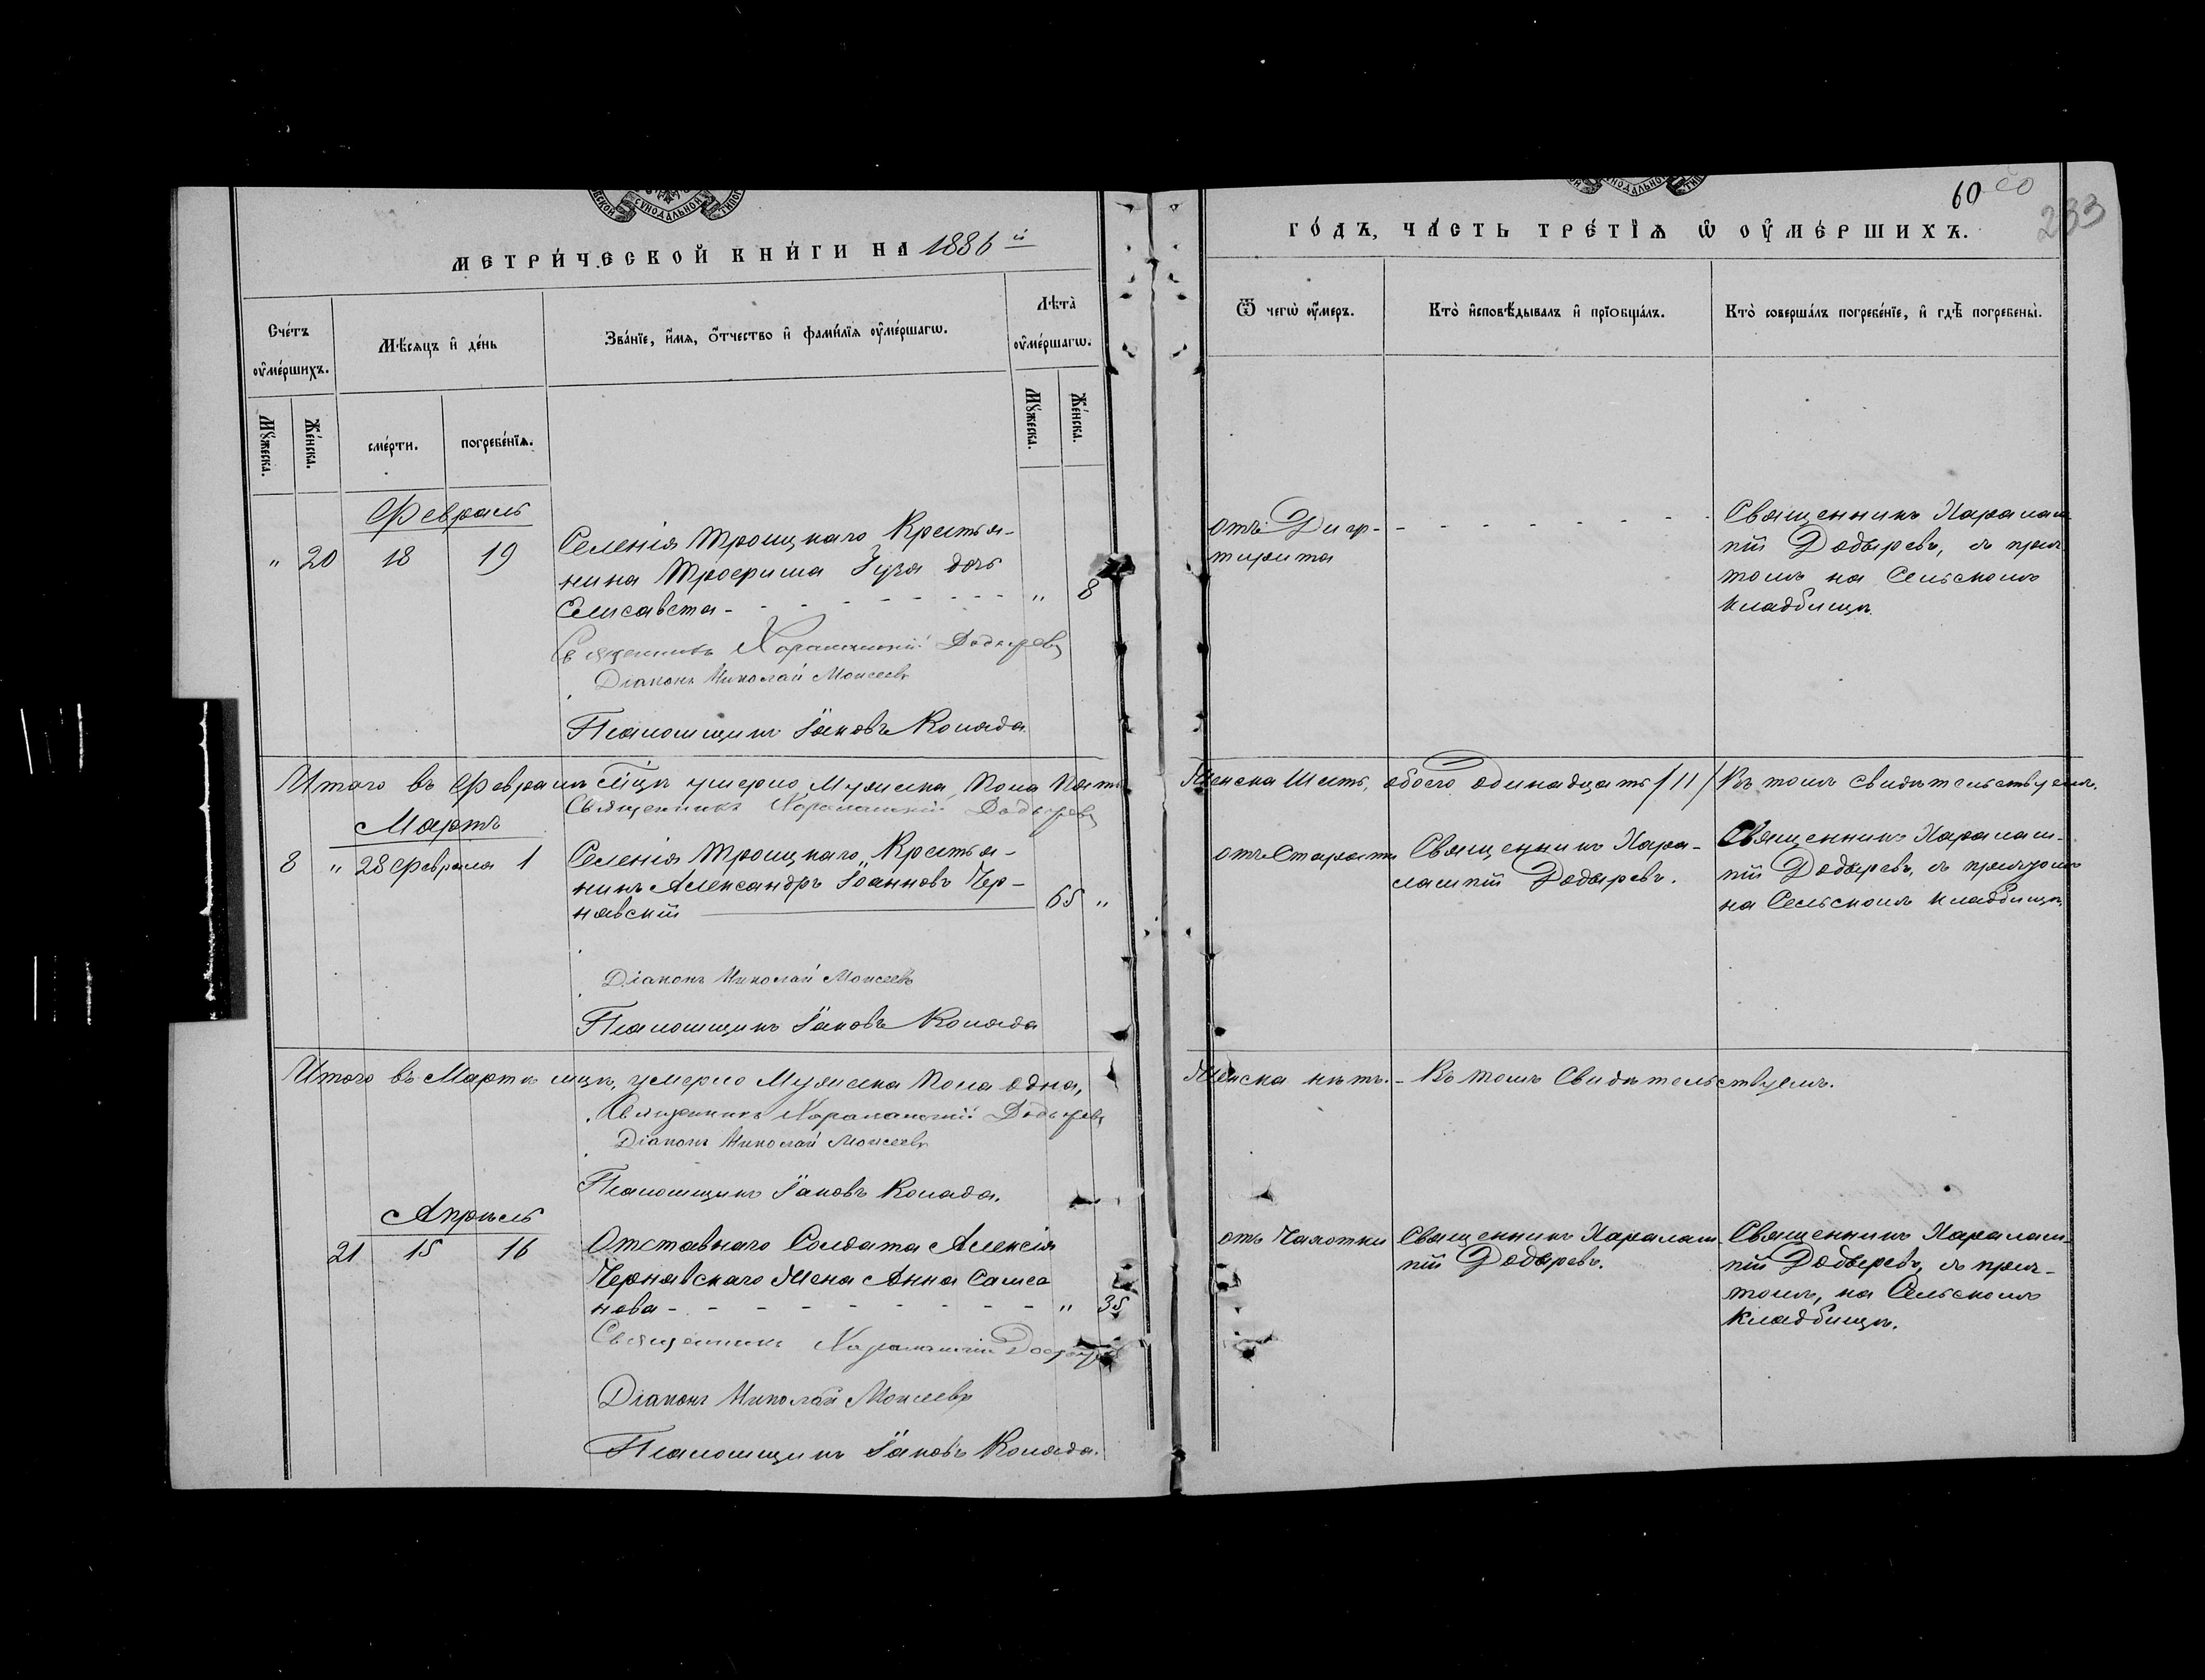 СУНОДАЛЬНОЙ
МЕТРИ́ЧЕСКОЙ КНИ́ГИ НА 1886 й
Сче́тъ
оу҆ме́ршихъ.
Мѣ́сѧцъ и҆ де́нь
Зва́нїе, и҆́мѧ, ѻ҆́тчество и҆ фами́лїѧ оу҆ме́ршагѡ.
Лѣта̀
оу҆ме́ршагѡ.
Мꙋ́жеска.
Же́нска.
сме́рти.
погребе́нїѧ.
Мꙋ́жеска.
Же́нска.
Февраль
" 20 18 19 Селенія Троицкаго Крестья-
нина Трофима Гуза дочь
Елисавета - - - - - - - - - " 8
Священникъ Харалампій Додыревъ
Діаконъ Николай Моисеевъ
Псаломщикъ Іаковъ Коляда
Итого въ Февралѣ мцѣ умерло Мужеска Пола Пять
Священникъ Харалампій Додыревъ
Мартъ
8 " 28 Февраля 1 Селенія Троицкаго, Крестья-
нинъ Александръ Іоанновъ Чер-
навскій 65 "
Діаконъ Николай Моисеевъ
Псаломщикъ Іаковъ Коляда
Итого въ Мартѣ мцѣ, умерло Мужеска Пола одна,
Священникъ Харалампій Додыревъ
Діаконъ Николай Моисеевъ
Псаломщикъ Іаковъ Коляда.
Апрѣль
21 15 16 Отставнаго Солдата Алексія
Чернавскаго Жена Анна Самсо
нова - - - - - - - - - - " 35
Священникъ Харалампій
Діаконъ Николай Моисеевъ
Псаломщикъ Іаковъ Коляда.
СУНОДАЛЬНОЙ
60 60
233
ГО́ДЪ, ЧА́СТЬ ТРЕ́ТЇѦ Ѡ҆ ОУ҆МЕ́РШИХЪ.
Ѿ чегѡ̀ оу҆́меръ.
Кто̀ и҆сповѣ́дывалъ и҆ прїѻбща́лъ.
Кто̀ соверша́лъ погребе́нїе, и҆ гдѣ̀ погребены̀.
отъ Диф-
тирита
- - - - - - - -
Священникъ Харалам-
пій Додыревъ, съ прич
томъ на Сельскомъ
кладбищѣ.
Женска Шесть, обоего одинадцать /11/ Въ томъ свидѣтельствуемъ.
отъ Старости
Священникъ Хара-
лампій Додыревъ.
Священникъ Харалам-
пій Додыревъ, съ причтомъ
на Сельскомъ кладбищѣ.
Женска нѣтъ. - Въ томъ Свидѣтельствуемъ.
отъ Чахотки
Священникъ Харалам-
пій Додыревъ.
Священникъ Харалам-
пій Додыревъ, съ прич-
томъ, на Сельскомъ
Кладбищѣ.